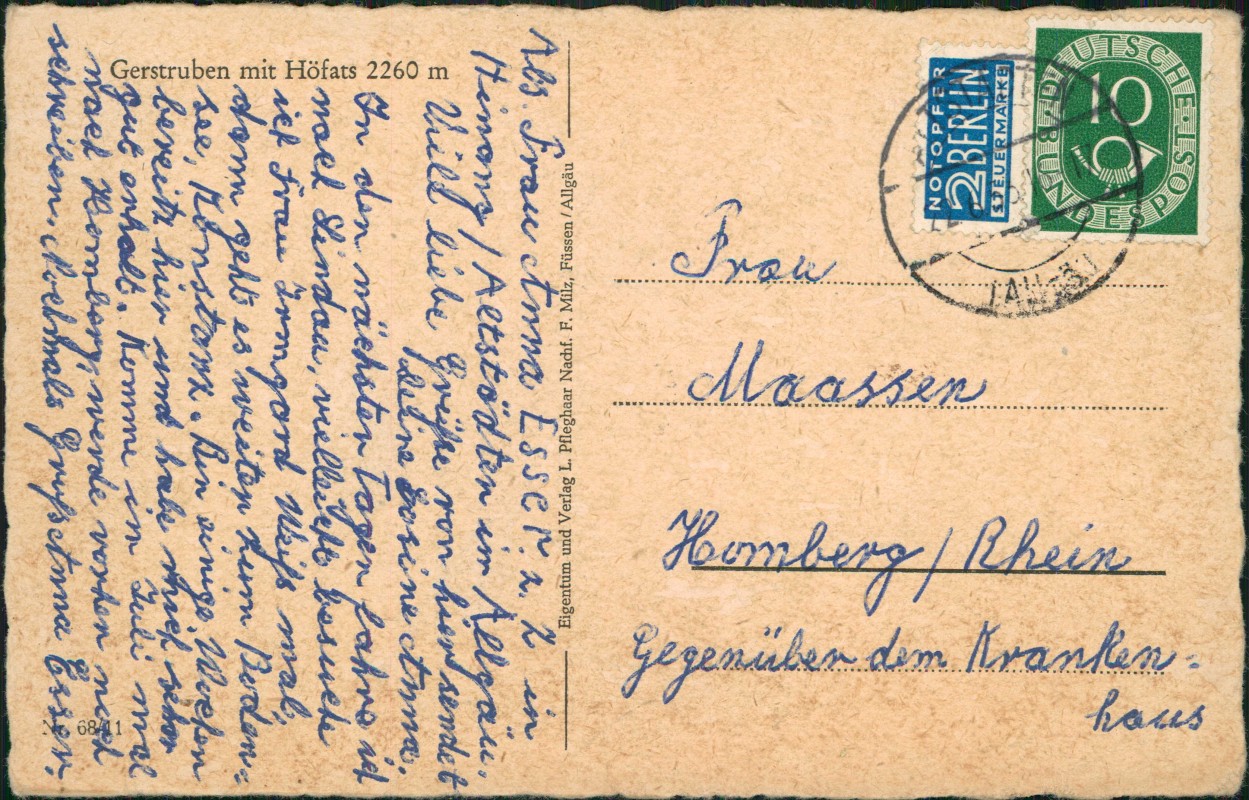 Gerstruben mit Höfats 2260 m
Abs. Frau Anna Esser. z. Z in
Hinang / Altstädten im Allgäu.
Viel liebe Grüße von hier sendet
Deine Cosine Anna.
In den nächsten Tagen fahre ich
nach Lindau, vielleicht besuche
ich Frau Irmgard Weiß mal,
dann geht es weiter zum Boden-
see, Konstanz. Bin einige Wochen
bereits hier und habe mich schon
gut erholt. Komme in Juli mal
nach Homberg, werde vorher noch
schreiben. Nochmals Gruß Anna Esser.
Nr. 68/11
Eigentum und Verlag L. Pfleghaar Nachf. F. Milz, Füssen / Allgäu
NOTOPFER
2 BERLIN
STEUERMARKE
DEUTSCHE BUNDESPOST
10
Frau
Maassen
Homberg / Rhein
Gegenüber dem Kranken-
haus